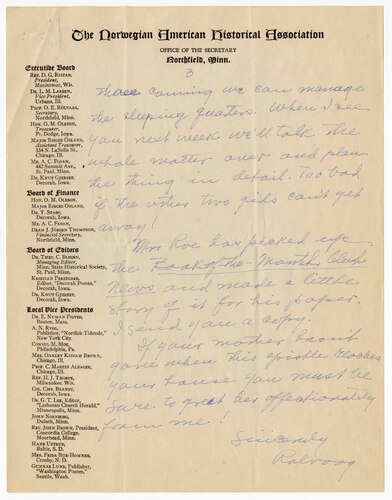 The Norwegian American Historical Association
OFFICE OF THE SECRETARY
Northfield, Minn.
3
Executive Board
REV. D. G. RISTAD,
President,
Manitowoc, Wis.
DR. L. M. LARSEN,
Vice President,
Urbana, Ill.
PROF. O. E. RÖLVAAG,
Secretary,
Northfield, Minn.
HON. O. M. OLESON,
Treasurer,
Ft. Dodge, Iowa.
MAJOR BIRGER OSLAND,
Assistant Treasurer,
134 N. LaSalle St.,
Chicago, Ill.
MR. A. C. FLOAN,
442 Summit Ave.,
St. Paul, Minn.
DR. KNUT GJERSET,
Decorah, Iowa.
Board of Finance
HON. O. M. OLESON,
MAJOR BIRGER OSLAND,
DR. T. STABO,
Decorah, Iowa.
MR. A. C. FLOAN,
DEAN J. JÖRGEN THOMPSON,
Financial Secretary,
Northfield, Minn.
Board of Editors
DR. THEO. C. BLEGEN,
Managing Editor,
Minn. State Historical Society,
St. Paul, Minn.
KRISTIAN PRESTGARD,
Editor, "Decorah Posten,"
Decorah, Iowa.
DR. KNUT GJERSET,
Decorah, Iowa.
Local Vice Presidents
DR. E. NYMAN FIGVED,
Boston, Mass.
A. N. RYGG,
Publisher, "Nordisk Tidende,"
New York City.
CONSUL M. MOE,
Philadelphia, Pa.
MRS. OAKLEY KISSAM BROWN,
Chicago, Ill.
PROF. C. MARTIN ALSAGER,
Chicago, Ill.
REV. H. J. THORPE,
Milwaukee, Wis.
COL. CHR. BRANDT,
Decorah, Iowa.
DR. G. T. LEE, Editor,
"Lutheran Church Herald,"
Minneapolis, Minn.
JOHN NORNBORG,
Duluth, Minn.
REV. JOHN BROWN, President,
Concordia College,
Moorhead, Minn.
HANS USTRUD,
Baltic, S. D.
MRS. FRIDA BUE-HOMNES,
Crosby, N. D.
GUNNAR LUND, Publisher,
"Washington Posten,"
Seattle, Wash.
coming we can manage
the sleeping quaters. When I see
you next week we'll talk the
whole matter over and plan
the thing in detail. Too bad
if the other two girls can't get
away!
Mrs Roe has picked up
the Book-of-the-Month Club
News and made a little
story of it for his paper.
I send you a copy.
If your mother hasn't
gone when this epistle reaches
your house you must be
sure to greet her affectionately
from me.
Sincerely
Rolvaag